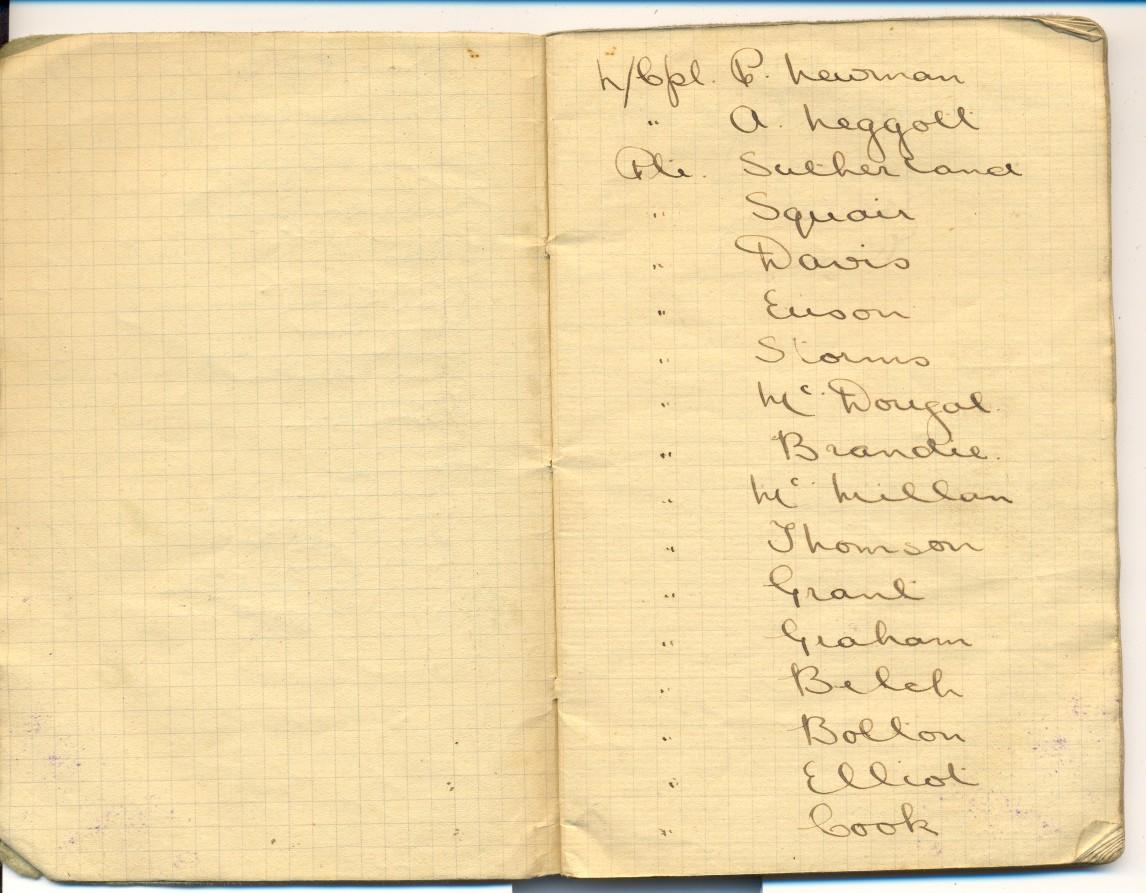 L/Cpl. P. Newman
" A. Leggott
Pte. Sutherland
" Squair
" Davis
" Euson
" Storms
" Mc Dougal.
" Brandie.
" Mc Millan
" Thomson
" Grant
" Graham
" Belch
" Bolton
" Elliot
" Cook